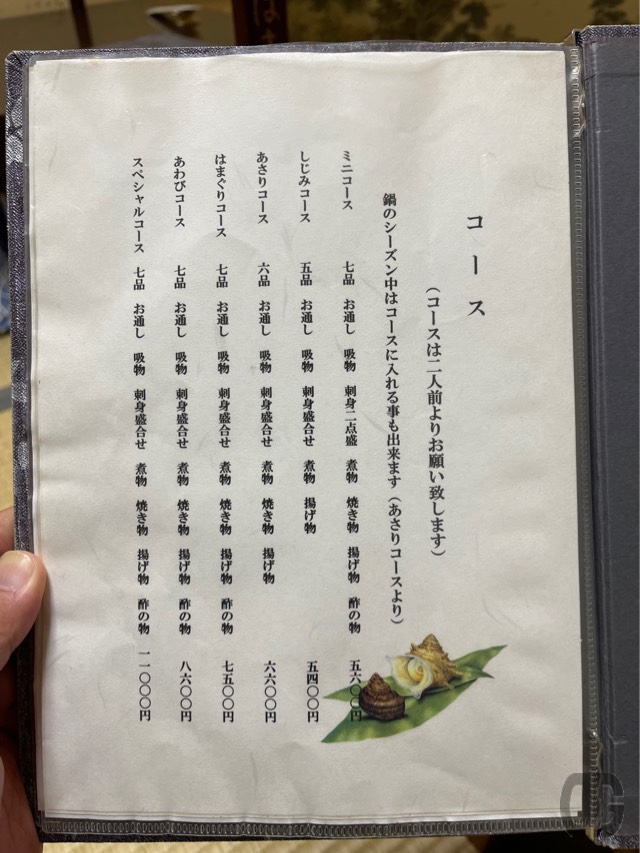 コース
(コースは二人前よりお願い致します)
鍋のシーズン中はコースに入れる事も出来ます(あさりコースより)
ミニコース 七品 お通し 吸物 刺身二点盛 煮物 焼き物 揚げ物 酢の物 五六〇〇円
しじみコース 五品 お通し 吸物 刺身盛合せ 煮物 揚げ物 五四〇〇円
あさりコース 六品 お通し 吸物 刺身盛合せ 煮物 焼き物 揚げ物 六六〇〇円
はまぐりコース 七品 お通し 吸物 刺身盛合せ 煮物 焼き物 揚げ物 酢の物 七五〇〇円
あわびコース 七品 お通し 吸物 刺身盛合せ 煮物 焼き物 揚げ物 酢の物 八六〇〇円
スペシャルコース 七品 お通し 吸物 刺身盛合せ 煮物 焼き物 揚げ物 酢の物 一一〇〇〇円